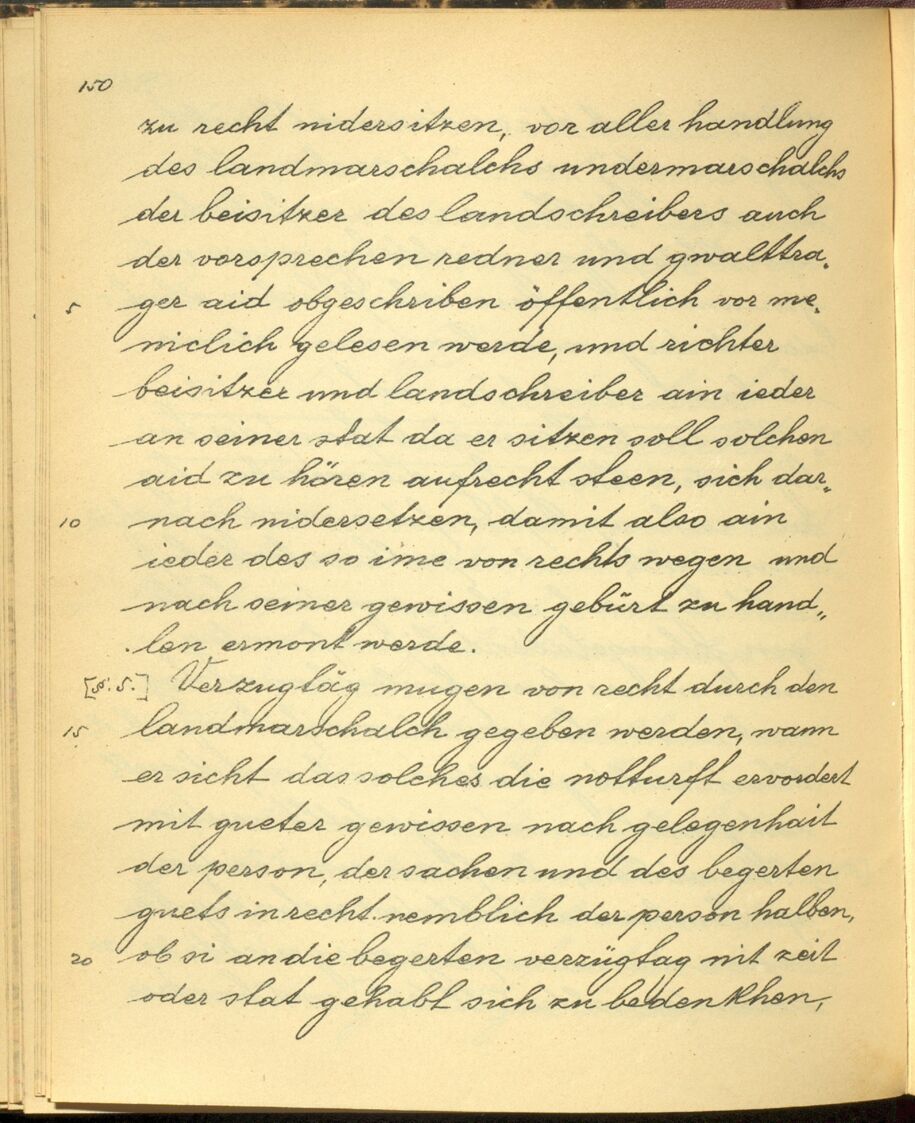 150
zu recht nidersitzen, vor aller handlung
des landmarschalchs undermarschalchs
der beisitzer des landschreibers auch
der vorsprechen redner und gwalttra„
5 ger aid obgeschriben öffentlich vor me„
niclich gelesen werde, und richter
beisitzer und landschreiber ain ieder
an seiner stat da er sitzen soll solchen
aid zu hören aufrecht steen, sich dar„
10 nach nidersetzen, damit also ain
ieder des so ime von rechts wegen und
nach seiner gewissen gebürt zu hand„
len ermont werde.
[§. 5.] Verzugtäg mugen von recht durch den
15 landmarschalch gegeben werden, wann
er sicht das solches die notturft ervordert
mit gueter gewissen nach gelegenhait
der person, der sachen und des begerten
guets in recht. nemblich der person halben,
20 ob si an die begerten verzügtag nit zeit
oder stat gehabt sich zu bedenkhen,